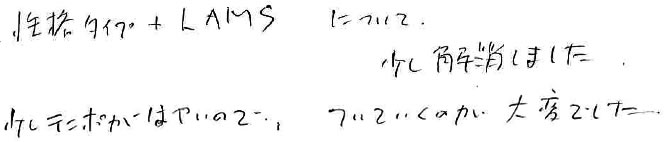 性格タイプ + LAMS について.
少し解消しました.
少しテンポがはやいので、ついていくのが大変でした.